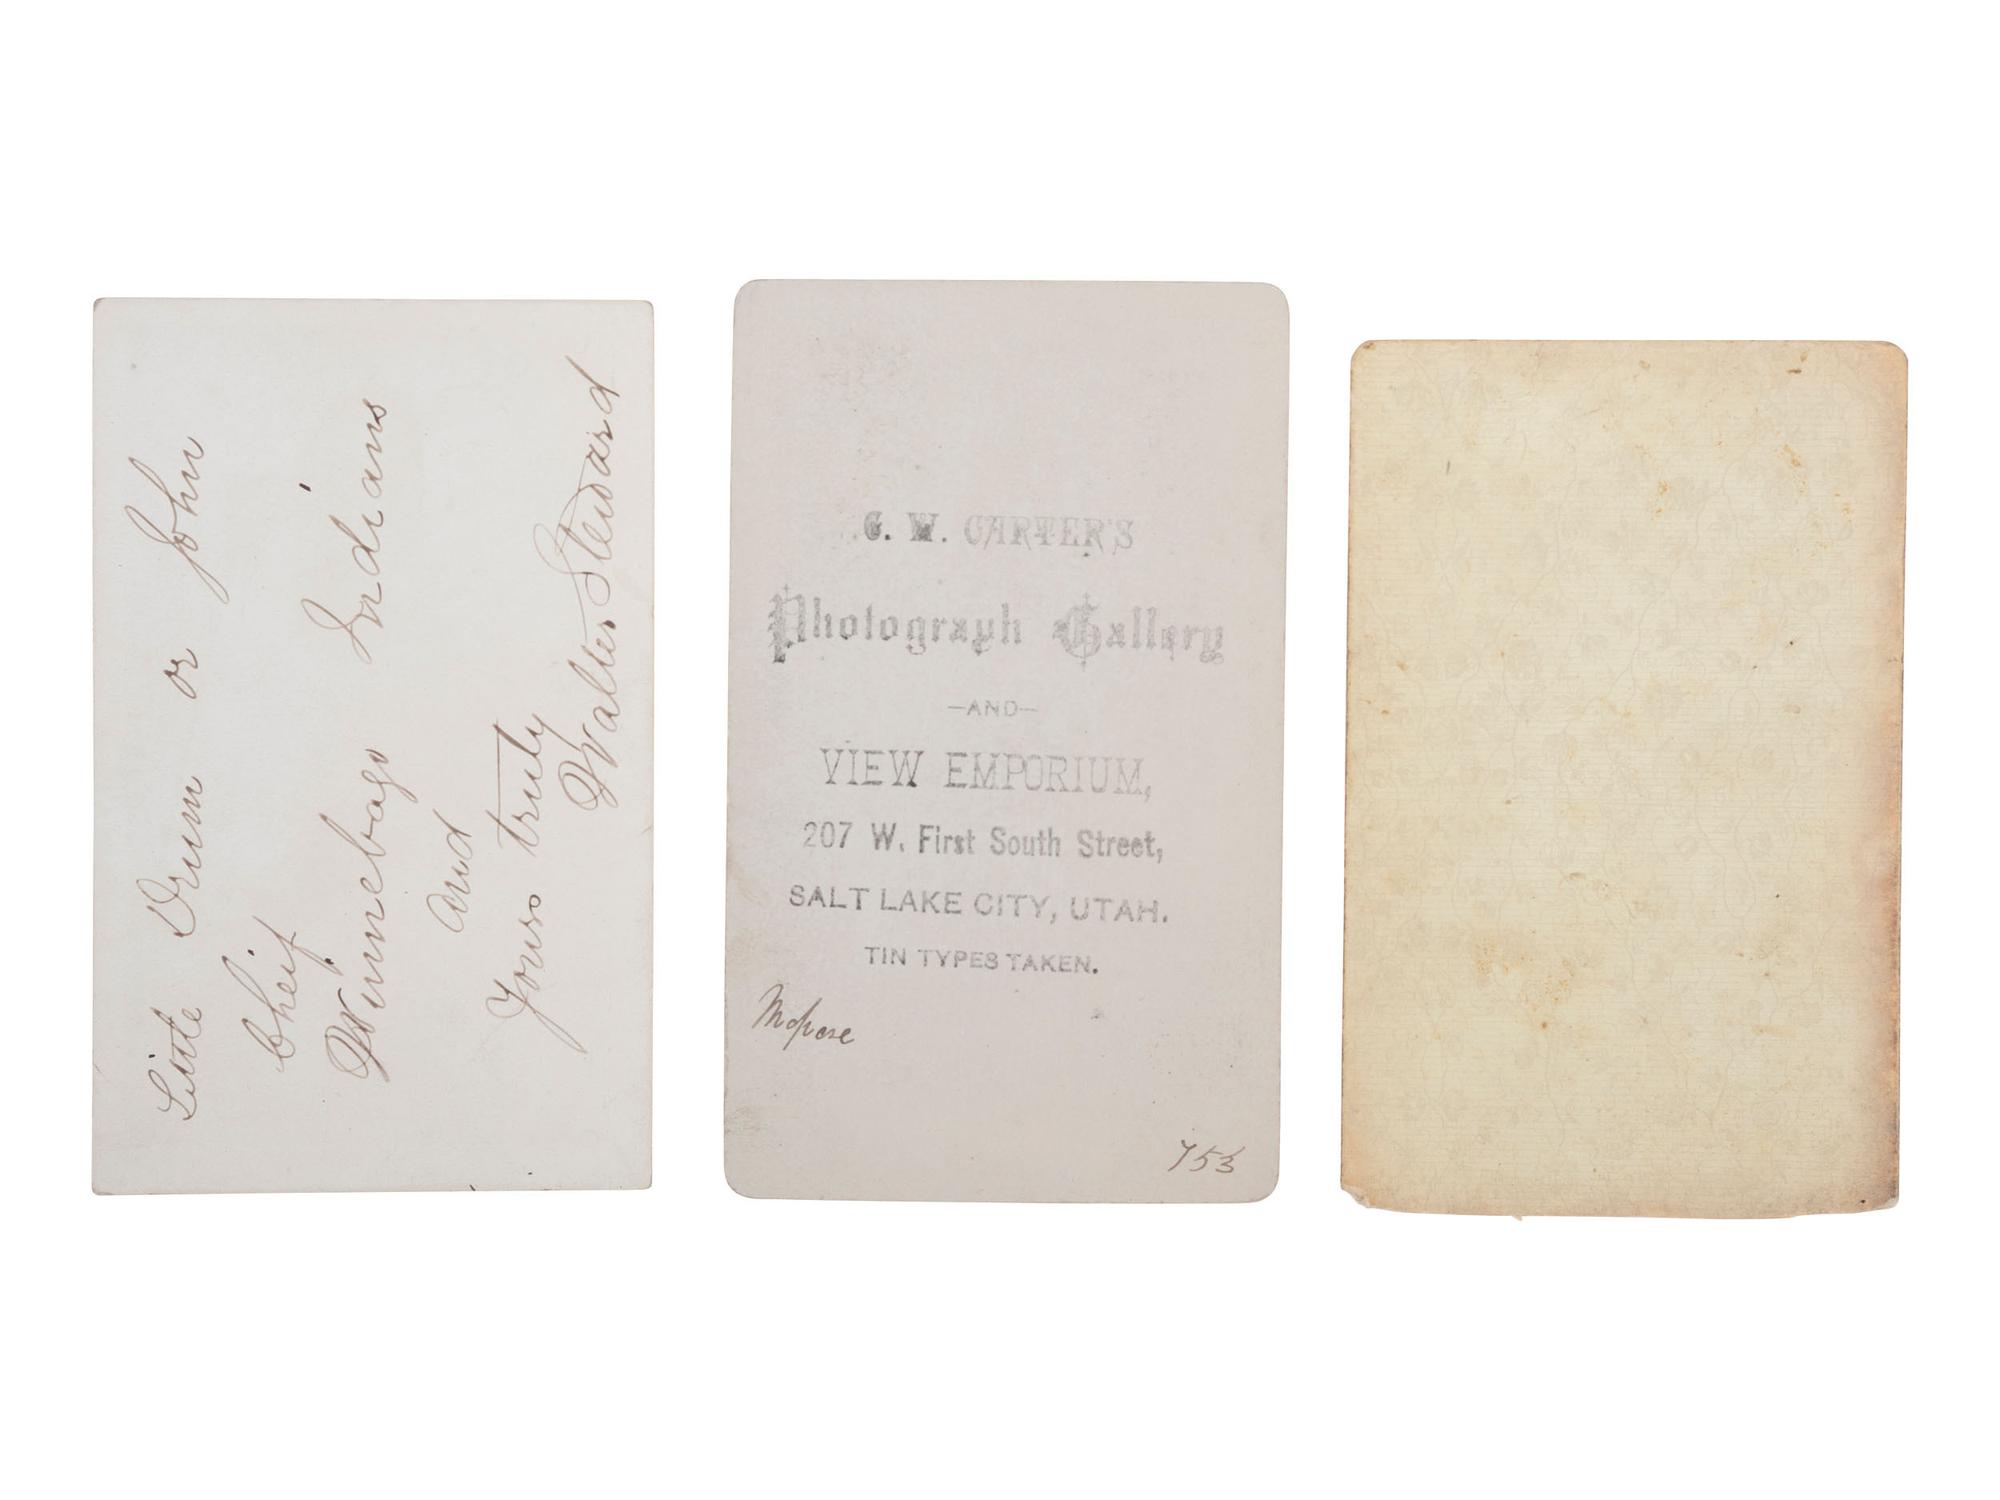 Little Drum or John
Cheif
Winnebago Indians
and
Yours truly
Walter Steward
C. W. CARTER'S
Photograph Gallery
—AND—
VIEW EMPORIUM,
207 W. First South Street,
SALT LAKE CITY, UTAH.
TIN TYPES TAKEN.
753